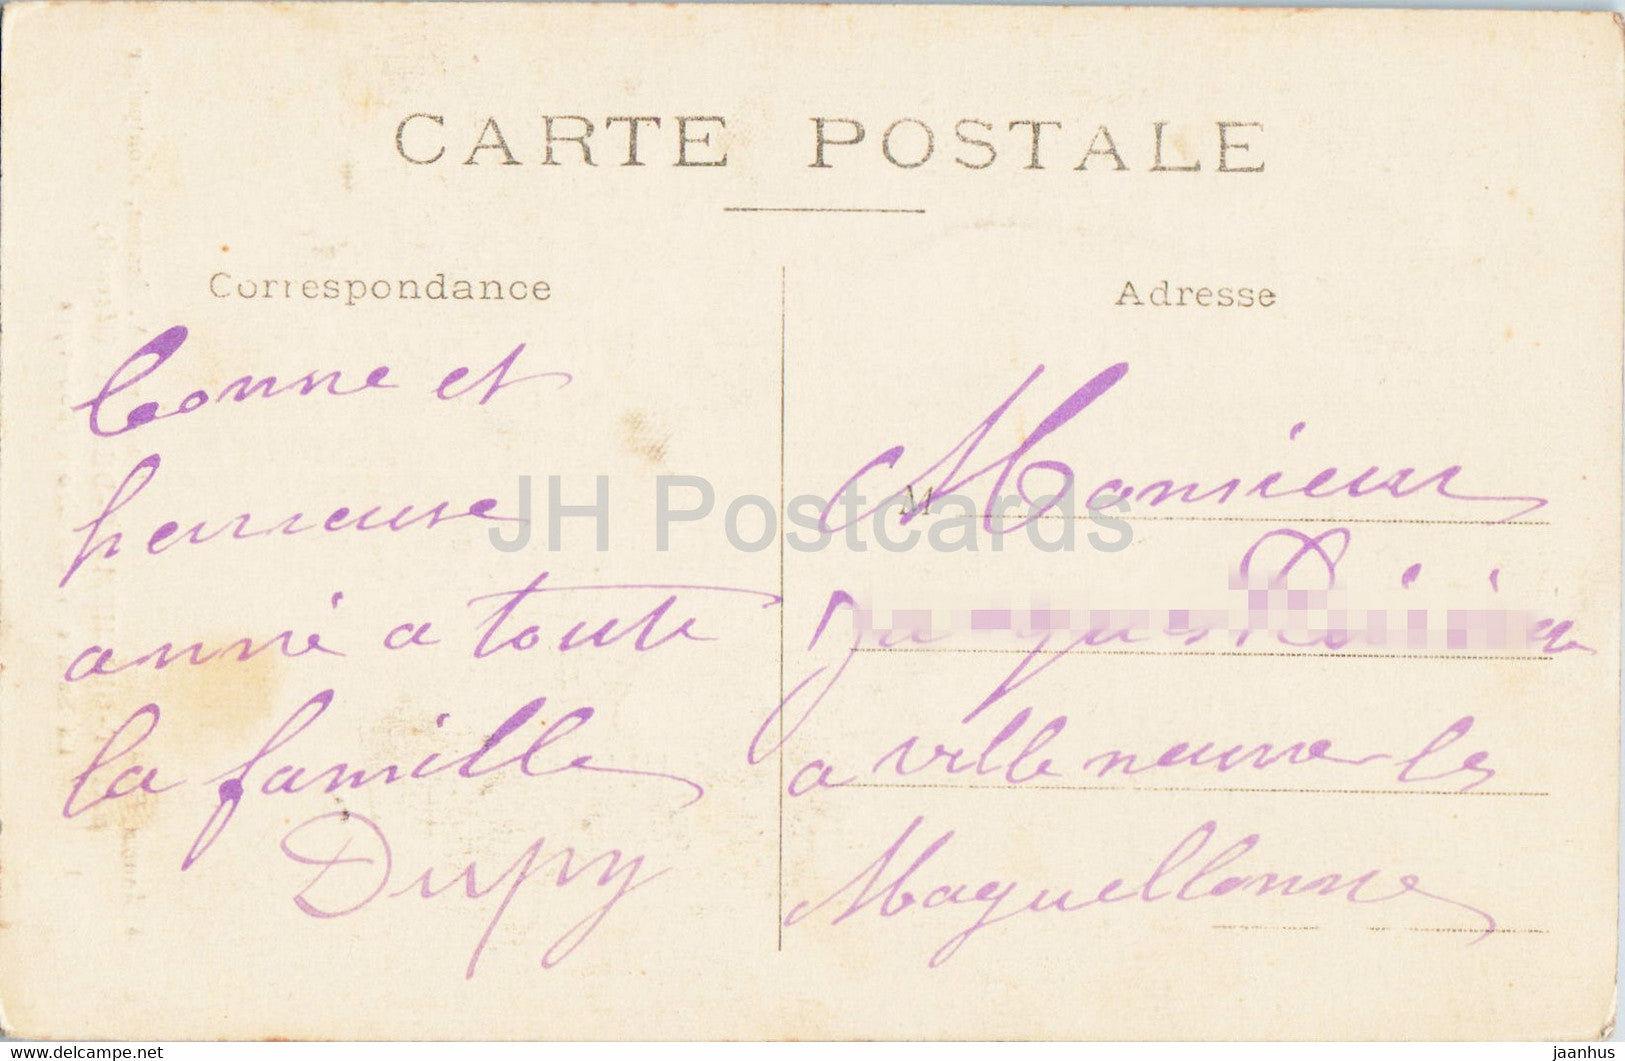 CARTE POSTALE
Correspondance
bonne et
heureuse
anné a toute
la famille
Dupy
Adresse
M
Monsieur
a villeneuve-les
Maguellonne
JH Postcards
www.delcampe.net
jaanhus